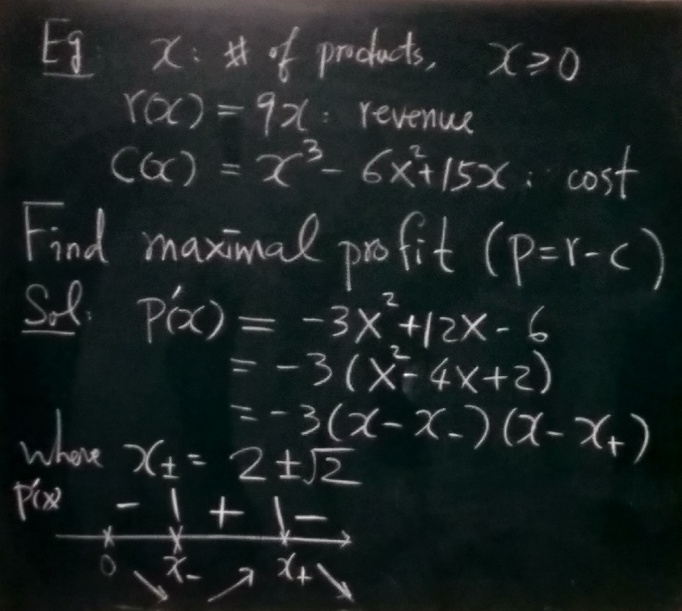 Eg: x: # of products, x ≥ 0
r(x) = 9x : revenue
c(x) = x³ - 6x² + 15x : cost
Find maximal profit (p=r-c)
Sol: p'(x) = -3x² + 12x - 6
= -3(x² - 4x + 2)
= -3(x - x₋)(x - x₊)
where x± = 2 ± √2
p'(x) - | + | -
0 ↘ x₋ ↗ x₊ ↘